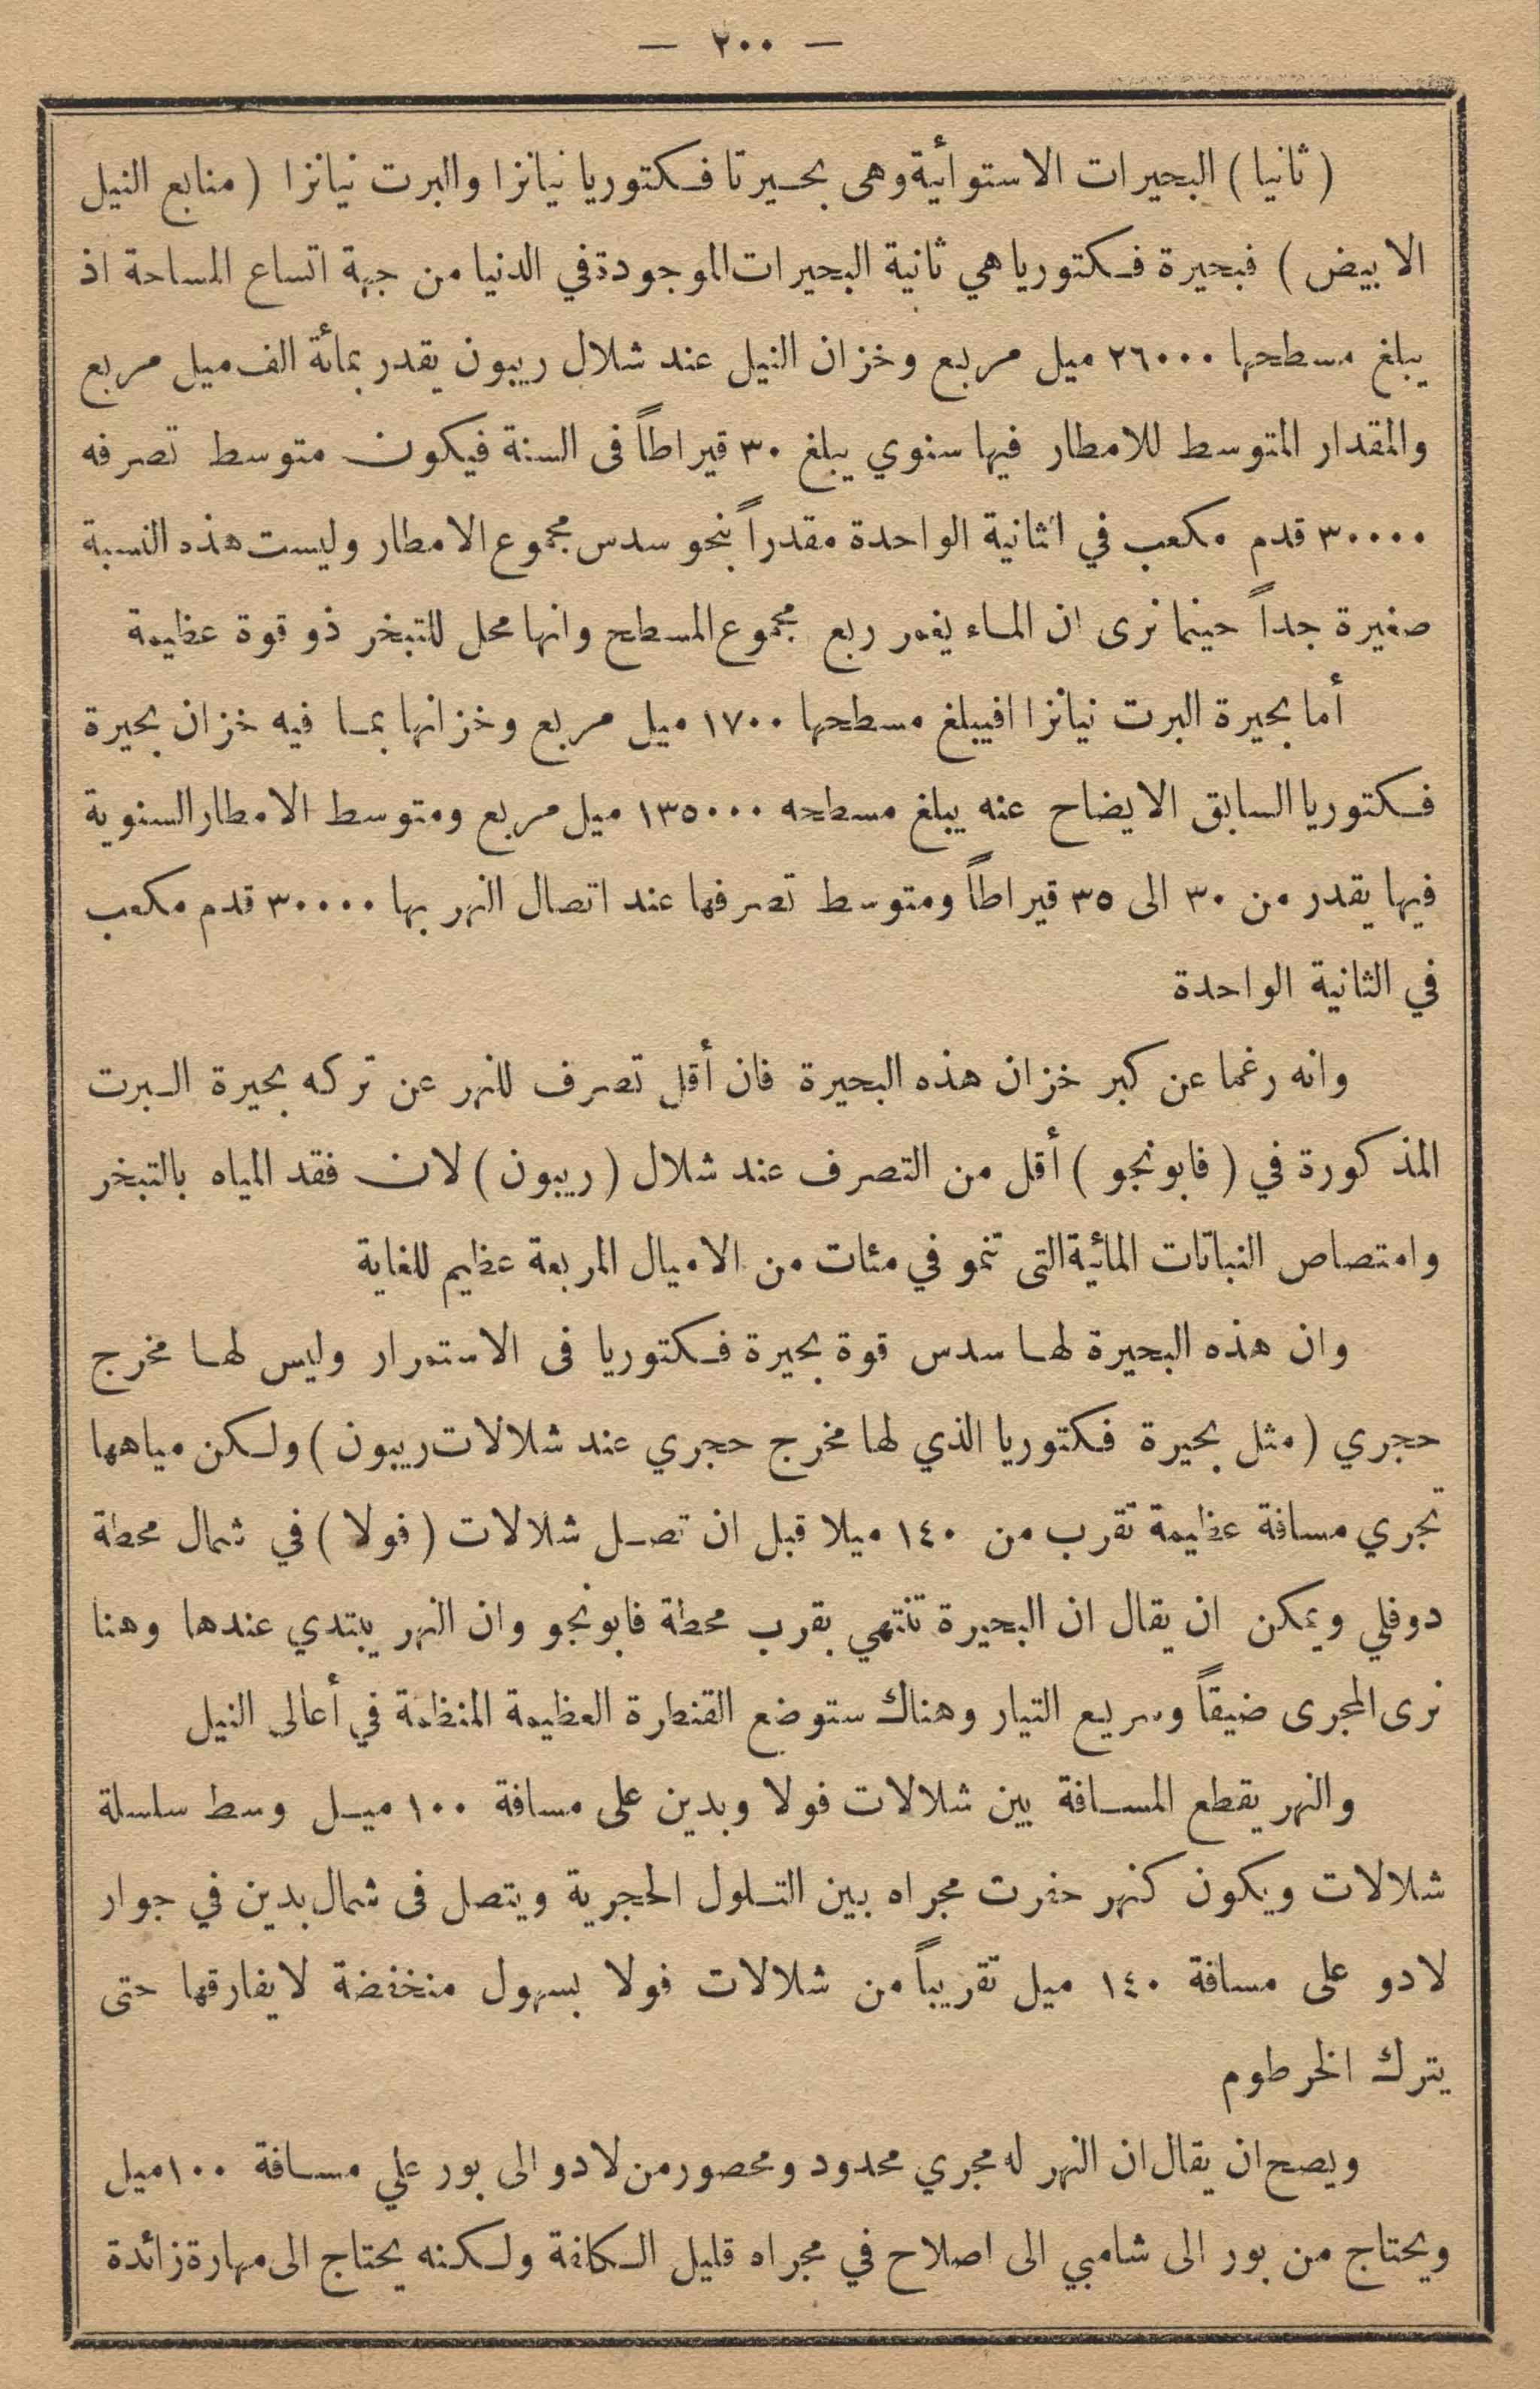 — ٢٠٠ —
( ثانيا ) البحيرات الاستوائية وهى بحيرتا فكتوريا نيانزا والبرت نيانزا ( منابع النيل
الابيض ) فبحيرة فكتوريا هي ثانية البحيرات الموجودة في الدنيا من جهة اتساع المساحة اذ
يبلغ مسطحها ٢٦٠٠٠ ميل مربع وخزان النيل عند شلال ريبون يقدر بمائة الف ميل مربع
والمقدار المتوسط للامطار فيها سنوي يبلغ ٣٠ قيراطاً فى السنة فيكون متوسط تصرفه
٣٠٠٠٠ قدم مكعب في الثانية الواحدة مقدراً بنحو سدس مجموع الامطار وليست هذه النسبة
صغيرة جداً حينما نرى ان الماء يغمر ربع مجموع المسطح وانها محل للتبخر ذو قوة عظيمة
أما بحيرة البرت نيانزا افيبلغ مسطحها ١٧٠٠ ميل مربع وخزانها بما فيه خزان بحيرة
فكتوريا السابق الايضاح عنه يبلغ مسطحه ١٣٥٠٠٠ ميل مربع ومتوسط الامطار السنوية
فيها يقدر من ٣٠ الى ٣٥ قيراطاً ومتوسط تصرفها عند اتصال النهر بها ٣٠٠٠٠ قدم مكعب
في الثانية الواحدة
وانه رغما عن كبر خزان هذه البحيرة فان أقل تصرف للنهر عن تركه بحيرة البرت
المذكورة في ( فابونجو ) أقل من التصرف عند شلال ( ريبون ) لان فقد المياه بالتبخر
وامتصاص النباتات المائية التى تنمو في مئات من الاميال المربعة عظيم للغاية
وان هذه البحيرة لها سدس قوة بحيرة فكتوريا فى الاستمرار وليس لها مخرج
حجري ( مثل بحيرة فكتوريا الذي لها مخرج حجري عند شلالات ريبون ) ولكن مياهها
تجري مسافة عظيمة تقرب من ١٤٠ ميلا قبل ان تصل شلالات ( فولا ) في شمال محطة
دوفلي ويمكن ان يقال ان البحيرة تنتهي بقرب محطة فابونجو وان النهر يبتدي عندها وهنا
نرى المجرى ضيقاً وسريع التيار وهناك ستوضع القنطرة العظيمة المنظمة في أعالى النيل
والنهر يقطع المسافة بين شلالات فولا وبدين على مسافة ١٠٠ ميل وسط سلسلة
شلالات ويكون كنهر حفرت مجراه بين التلول الحجرية ويتصل فى شمال بدين في جوار
لادو على مسافة ١٤٠ ميل تقريباً من شلالات فولا بسهول منخفضة لا يفارقها حتى
يترك الخرطوم
ويصح ان يقال ان النهر له مجري محدود ومحصور من لادو الى بور علي مسافة ١٠٠ ميل
ويحتاج من بور الى شامبي الى اصلاح في مجراه قليل الكلفة ولكنه يحتاج الى مهارة زائدة